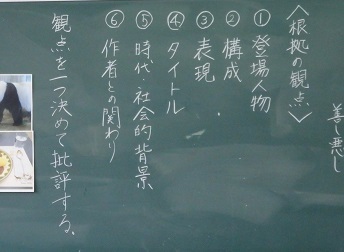 善し悪し
〈根拠の観点〉
①登場人物
②構成
③表現
④タイトル
⑤時代・社会的背景
⑥作者との関わり
観点を一つ決めて批評する。